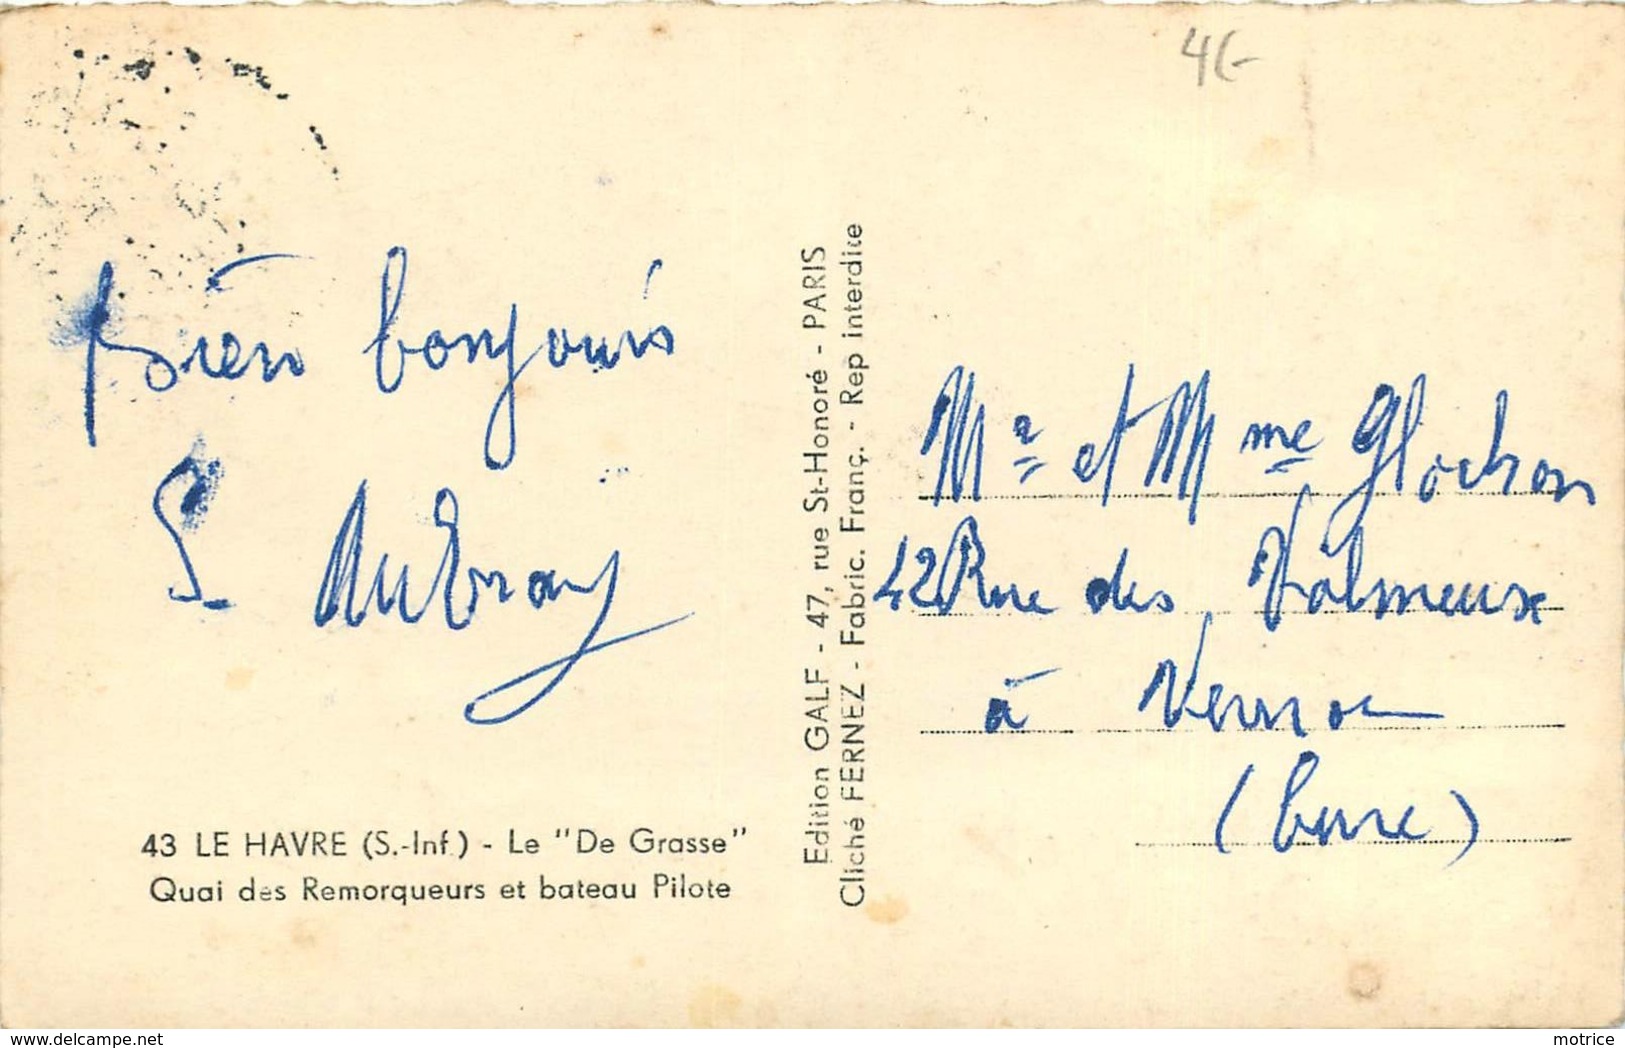 4(-
Bien bonjours
S. Aubray
43 LE HAVRE (S.-Inf.) - Le "De Grasse"
Quai des Remorqueurs et bateau Pilote
Edition GALF - 47, rue St-Honoré - PARIS
Cliché FERNEZ - Fabric. Franç. - Rep interdite
Mr et Mme Glochon
42 Rue des Valmeux
à Vernon
(Eure)
delcampe.net
motrice